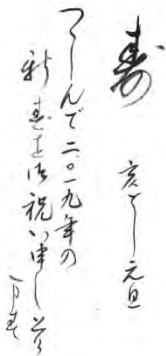 寿
亥とし元旦
つゝしんで二〇一九年の
新春を御祝い申し上げ
ます